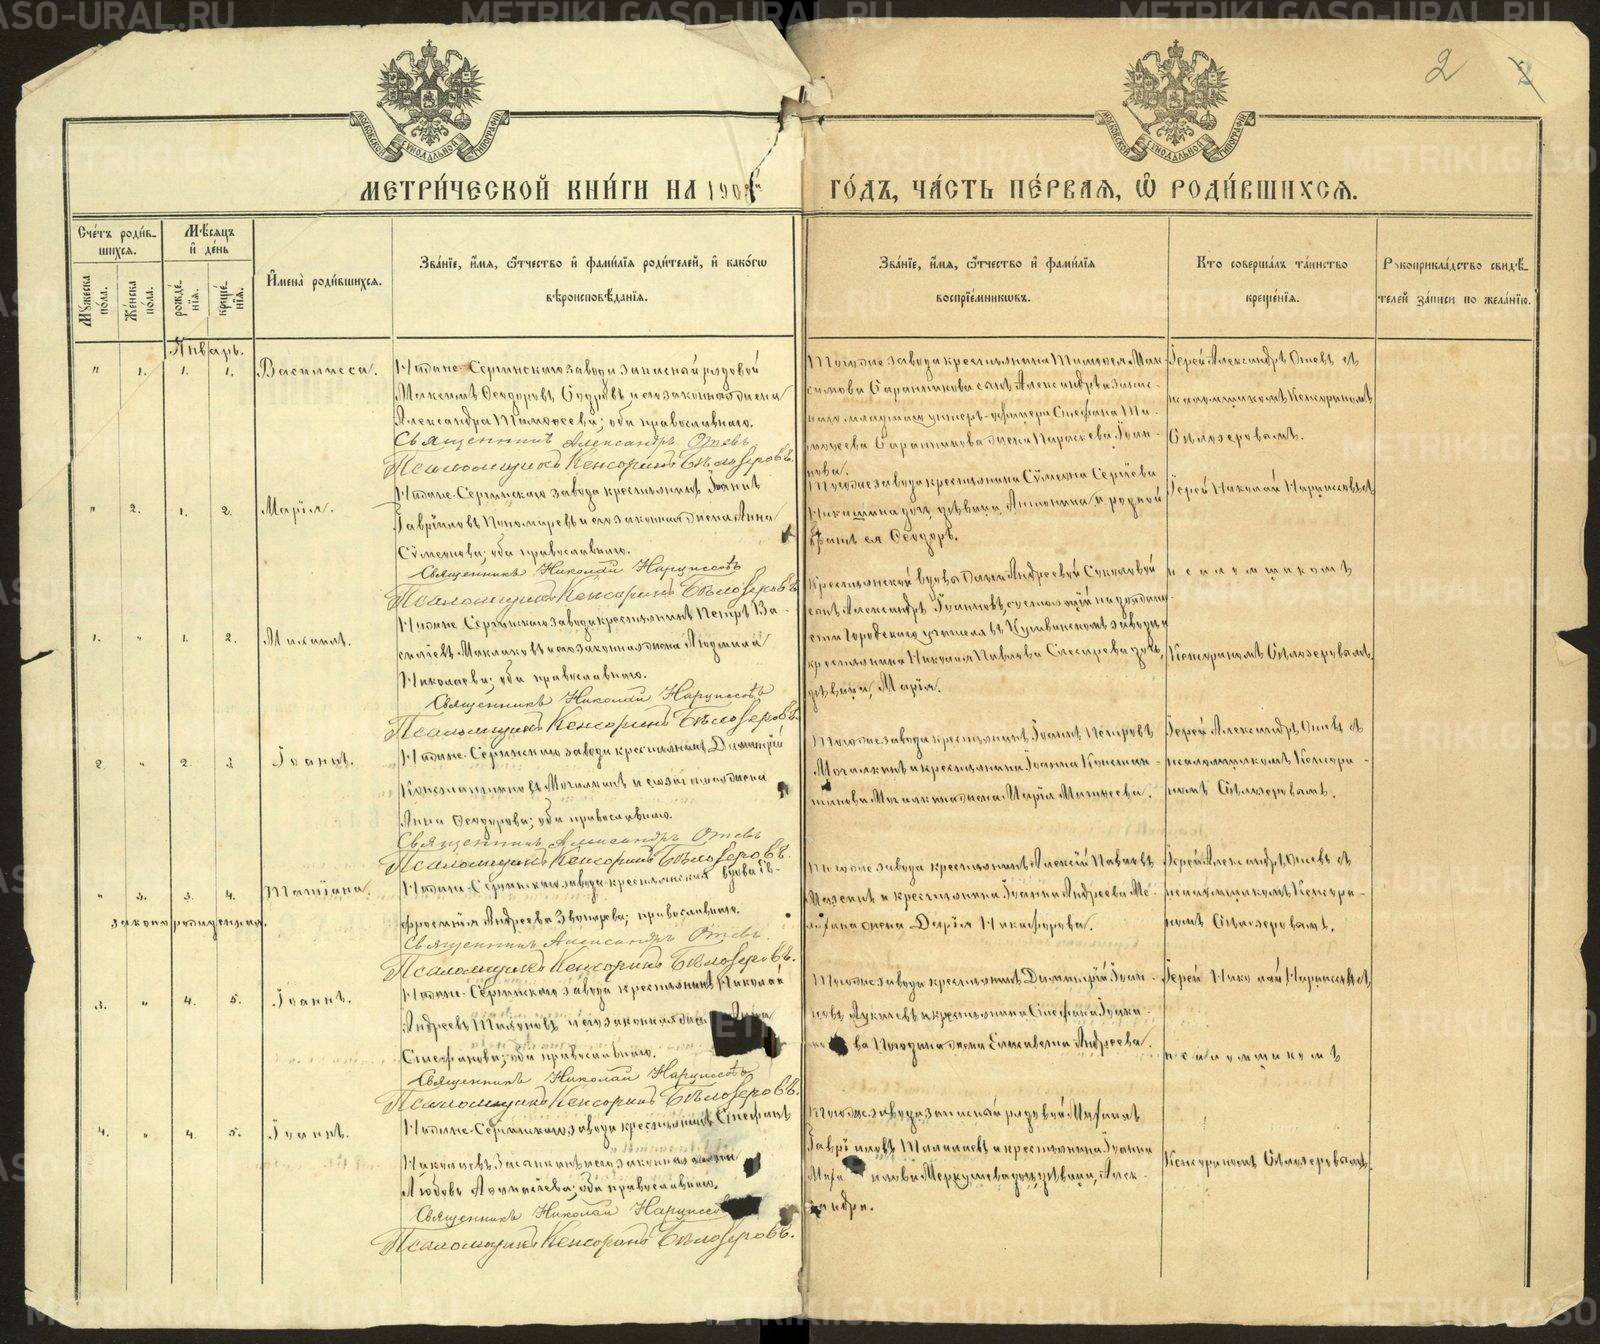 METRIKI.GASO-URAL.RU
2
МОСКОВСКОЙ СѴНОДАЛЬНОЙ ТИПОГРАФІИ
МОСКОВСКОЙ СѴНОДАЛЬНОЙ ТИПОГРАФІИ
МЕТРИ́ЧЕСКОЙ КНИ́ГИ НА 190
ГО́ДЪ, ЧА́СТЬ ПЕ́РВАЯ, Ѡ РОДИ́ВШИХСЯ.
Сче́тъ роди́в-
шихся.
Мꙋжеска по́ла.
Же́нска по́ла.
Мѣ́сяцъ
и҆ де́нь
рожде́-
нїя.
креще́-
нїя.
И҆мена̀ роди́вшихся.
Зва́нїе, и҆́мя, ѻ҆́тчество и҆ фами́лїя роди́телей, и҆ како́гѡ
вѣроисповѣ́данїя.
Зва́нїе, и҆́мя, ѻ҆́тчество и҆ фами́лїя
воспрїе́мникѡвъ.
Кто соверша́лъ та́инство
креще́нїя.
Рꙋкоприкла́дство свидѣ́-
телей за́писи по жела́нїю.
Январь.
" 1. 1. 1. Василисса.
Нижне-Сергинскаго завода запасный рядовой
Максимъ Ѳеодоровъ и его законная жена
Александра Тимоѳеева; оба православнаго.
Священникъ Александръ Отевъ
Псаломщикъ Кенсоринъ Бѣлозеровъ.
Тогоже завода крестьянина Тимоѳея Мак-
симова Баранникова сынъ Александръ и запас-
наго младшаго унтеръ-офицера Стефана Ти-
моѳеева Баранникова жена Параскева Іоан-
нова.
Іерей Александръ Отевъ съ
псаломщикомъ Кенсориномъ
Бѣлозеровымъ.
" 2. 1. 2. Марія.
Нижне-Сергинскаго завода крестьянинъ Іоаннъ
Гавріиловъ Пономаревъ и его законная жена Анна
Сѵмеонова; оба православнаго.
Священникъ Николай Нарциссовъ
Псаломщикъ Кенсоринъ Бѣлозеровъ
Тогоже завода крестьянина Сѵмеона Сергіева
Никишина дочь дѣвица Антонина и родной
братъ ея Ѳеодоръ.
Іерей Николай Нарциссовъ съ
псаломщикомъ
1. " 1. 2. Михаилъ.
Нижне-Сергинскаго завода крестьянинъ Петръ Ва-
силіевъ Маклаковъ и его законная жена Людмила
Николаева; оба православнаго.
Священникъ Николай Нарциссовъ
Псаломщикъ Кенсоринъ Бѣлозеровъ
Крестьянской вдовы Андреевой Соколовой
сынъ Александръ Іоанновъ,
Городскаго училища въ Кушвинскомъ заводѣ и
крестьянина Николая Павлова Слесарева дочь,
дѣвица, Марія.
Кенсориномъ Бѣлозеровымъ.
2. " 2. 3 Іоаннъ.
Нижне-Сергинскаго завода крестьянинъ Димитрій
Константиновъ Мочалкинъ и его законная жена
Анна Ѳеодорова; оба православнаго.
Священникъ Александръ Отевъ
Псаломщикъ Кенсоринъ Бѣлозеровъ.
Тогоже завода крестьянинъ Іоаннъ Петровъ
Мочалкинъ и крестьянина Іоанна Констан-
тинова Мочалкина жена Марія Матѳеева.
Іерей Александръ Отевъ съ
псаломщикомъ Кенсори-
номъ Бѣлозеровымъ.
" 3. 3. 4. Татіана.
законнорожденная.
Нижне-Сергинскаго завода крестьянская вдова Ев-
фросинія Андреева; православнаго.
Священникъ Александръ Отевъ.
Псаломщикъ Кенсоринъ Бѣлозеровъ.
Тогоже завода крестьянинъ Алексій Павловъ
и крестьянина Іоанна Андреева
жена Дарія Никифорова.
Іерей Александръ Отевъ съ
псаломщикомъ Кенсори-
номъ Бѣлозеровымъ.
3. " 4. 5. Іоаннъ.
Нижне-Сергинскаго завода крестьянинъ Николай
Андреевъ Тихоновъ и его законная жена Анна
Стефанова; оба православнаго.
Священникъ Николай Нарциссовъ
Псаломщикъ Кенсоринъ Бѣлозеровъ.
Тогоже завода крестьянинъ Димитрій Іоан-
новъ и крестьянина Стефана Іоан-
ва жена Елисавета Андреева.
Іерей Николай Нарциссовъ съ
псаломщикомъ
4. " 4. 5. Іоаннъ.
Нижне-Сергинскаго завода крестьянинъ Стефанъ
Николаевъ и его законная жена
Любовь Аѳанасіева; оба православнаго.
Священникъ Николай Нарциссовъ
Псаломщикъ Кенсоринъ Бѣлозеровъ.
Тогоже завода запасный рядовой Михаилъ
Гавріиловъ и крестьянина Іоанна
Меркулева дочь, дѣвица, Алек-
сандра.
Кенсориномъ Бѣлозеровымъ.